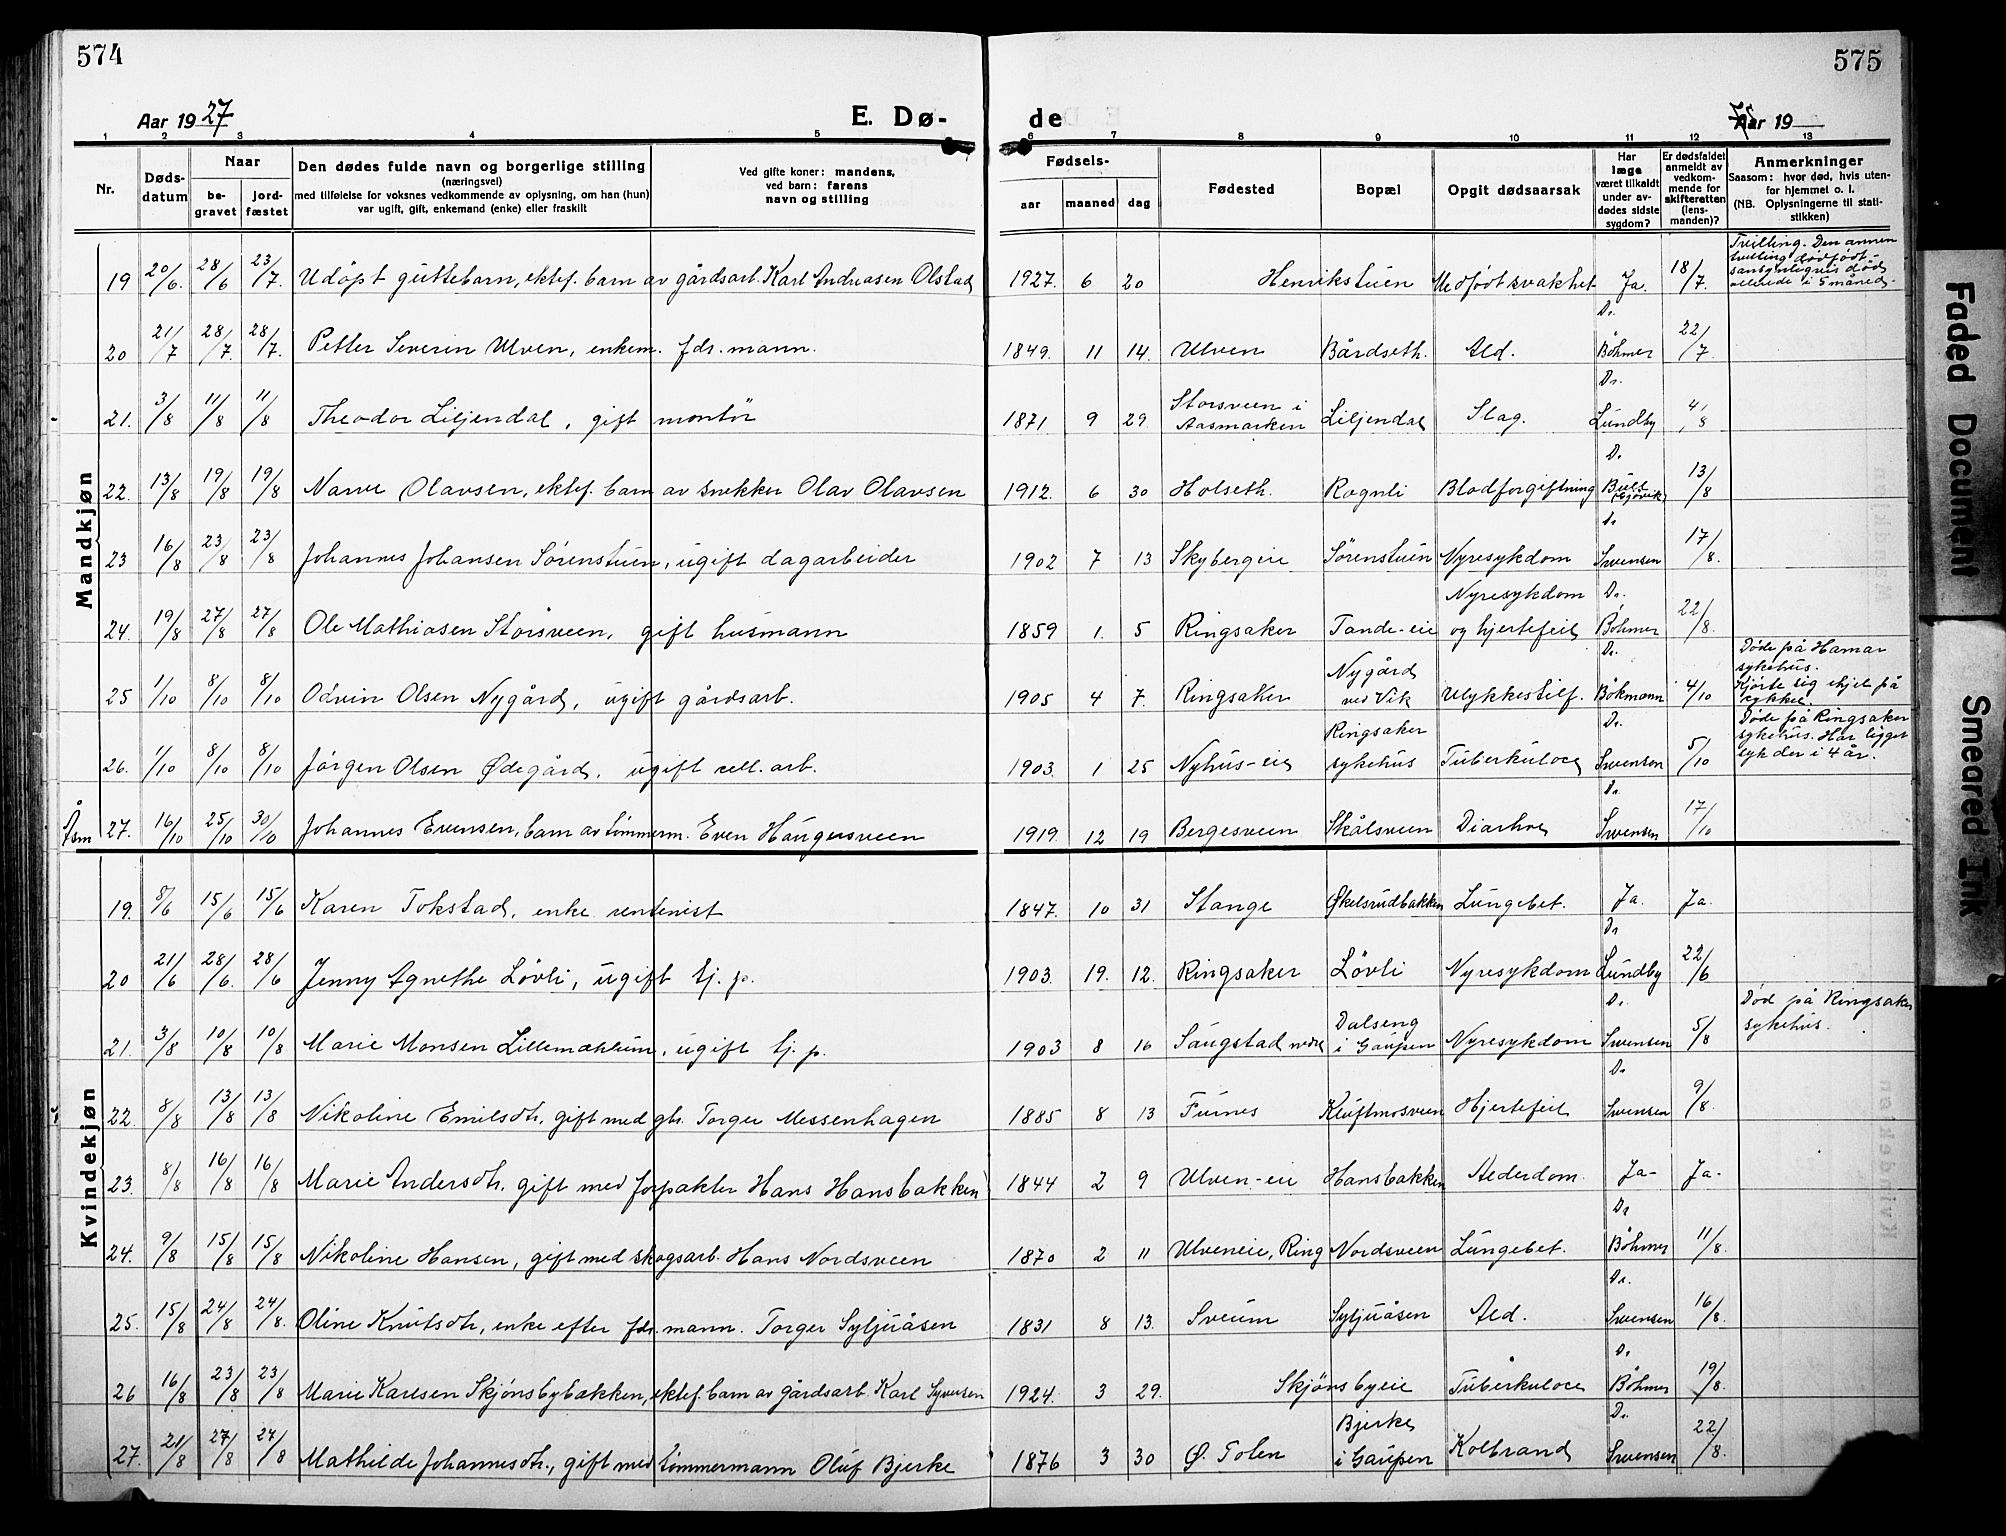 574
575
Aar 1927
E. Dø-
de
Aar 19
1 2 3 4 5 6 7 8 9 10 11 12 13
Nr.
Døds-
datum
Naar
be-
gravet
jord-
fæstet
Den dødes fulde navn og borgerlige stilling
(næringsvei)
med tilføielse for voksnes vedkommende av oplysning, om han (hun)
var ugift, gift, enkemand (enke) eller fraskilt
Ved gifte koner: mandens,
ved barn: farens
navn og stilling
Fødsels-
aar maaned dag
Fødested
Bopæl
Opgit dødsaarsak
Har
læge
været tilkaldt
under av-
dødes sidste
sygdom?
Er dødsfaldet
anmeldt av
vedkom-
mende for
skifteretten
(lens-
manden)?
Anmerkninger
Saasom: hvor død, hvis uten-
for hjemmet o. l.
(NB. Oplysningerne til stati-
stikken)
Mandkjøn
19 20/6 28/6 23/7. Udøpt guttebarn, ektef. barn av gårdsarb. Karl Andreasen Olstad 1927. 6 20 Henrikstuen Medfødt svakhet Ja. 18/7.
Tvilling. Den annen
tvilling dødfødt
sansynligvis død
allerede i 5 måned.
20 21/7 28/7. 28/7. Petter Severin Ulven, enkem. fdr. mann. 1849. 11 14. Ulven Bårdseth. Ald. Dr. Böhmer 22/7
21. 3/8 11/8 11/8 Theodor Liljendal, gift montør 1871 9 29. Storsveen i Aasmarken Liljendal Slag. Dr. Lundby 4/8
22. 13/8 19/8 19/8 Narve Olavsen, ektef. barn av snekker Olav Olavsen 1912. 6 30 Holseth. Rognli Blodforgiftning Dr. Bull Gjøvik 13/8
23 16/8 23/8 23/8 Johannes Johansen Sørenstuen, ugift dagarbeider 1902 7 13 Skybergeie Sørenstuen Nyresykdom Dr Svensen 17/8.
24. 19/8 27/8 27/8 Ole Mathiasen Storsveen, gift husmann 1859 1. 5 Ringsaker Tande-eie Nyresykdom og hjertefeil Dr. Böhmer 22/8.
25 1/10 8/10 8/10 Odvin Olsen Nygård, ugift gårdsarb. 1905 4 7. Ringsaker Nygård ved Vik Ulykkestilf. Dr. Böhmann 4/10
Døde på Hamar
sykehus.
Kjørte sig ihjel på
sykkel.
26. 1/10 8/10 8/10 Jørgen Olsen Ødegård, ugift cell. arb. 1903. 1 25 Nyhus-eie Ringsaker sykehus Tuberkulose Dr. Svensen 5/10
Døde på Ringsaker
sykehus. Har ligget
syk der i 4 år.
Åsm 27. 16/10 25/10 30/10 Johannes Evensen, barn av tømmerm. Even Haugersveen 1919. 12 19 Bergesveen Skålsveen Diarhoe Dr. Svensen 17/10
Kvindekjøn
19. 8/6 15/6 15/6 Karen Tokstad, enke rentenist 1847. 10 31 Stange Økelsrudbakken Lungebet. Ja. Ja.
20 21/6 28/6. 28/6 Jenny Agnethe Løvli, ugift tj. p. 1903. 19. 12. Ringsaker Løvli Nyresykdom Dr Lundby 22/6
21. 3/8 10/8 10/8 Marie Monsen Lillemæhlum, ugift tj. p. 1903 8 16 Saugstad nedre Dalseng i Gaupen Nyresykdom Dr. Svensen 5/8
Død på Ringsaker
sykehus.
22. 8/8 13/8 13/8 Nikoline Emilsdtr. gift med gbr. Torger Messenhagen 1885 8 13 Furnes Kluftmosveen Hjertefeil Dr Svensen 9/8.
23. 8/8 16/8 16/8 Marie Andersdtr. gift med forpakter Hans Hansbakken 1844 2 9 Ulven-eie Hansbakken Alderdom. Ja- Ja-
24. 9/8 15/8 15/8 Nikoline Hansen, gift med skogsarb. Hans Nordsveen 1870 2 11 Ulveneie, Ring Nordsveen Lungebet. Dr Böhmer 11/8.
25. 15/8 24/8 24/8. Oline Knutsdtr, enke efter fdr. mann. Torger Syljuåsen 1831 8 13. Sveum Syljuåsen Ald. Dr. Svensen 16/8.
26 16/8 23/8 23/8 Marie Karlsen Skjønsbybakken, ektef. barn av gårdsarb. Karl Syversen 1924. 3 29. Skjønsbyeie Tuberkulose Dr Böhmer 19/8.
27. 21/8 27/8 27/8 Mathilde Johannesdtr., gift med tømmermann Oluf Bjerke 1876 3 30 Ø. Tolen Bjerke i Gaupen Kolbrand Dr. Svensen 22/8.
Faded Document
Smeared Ink